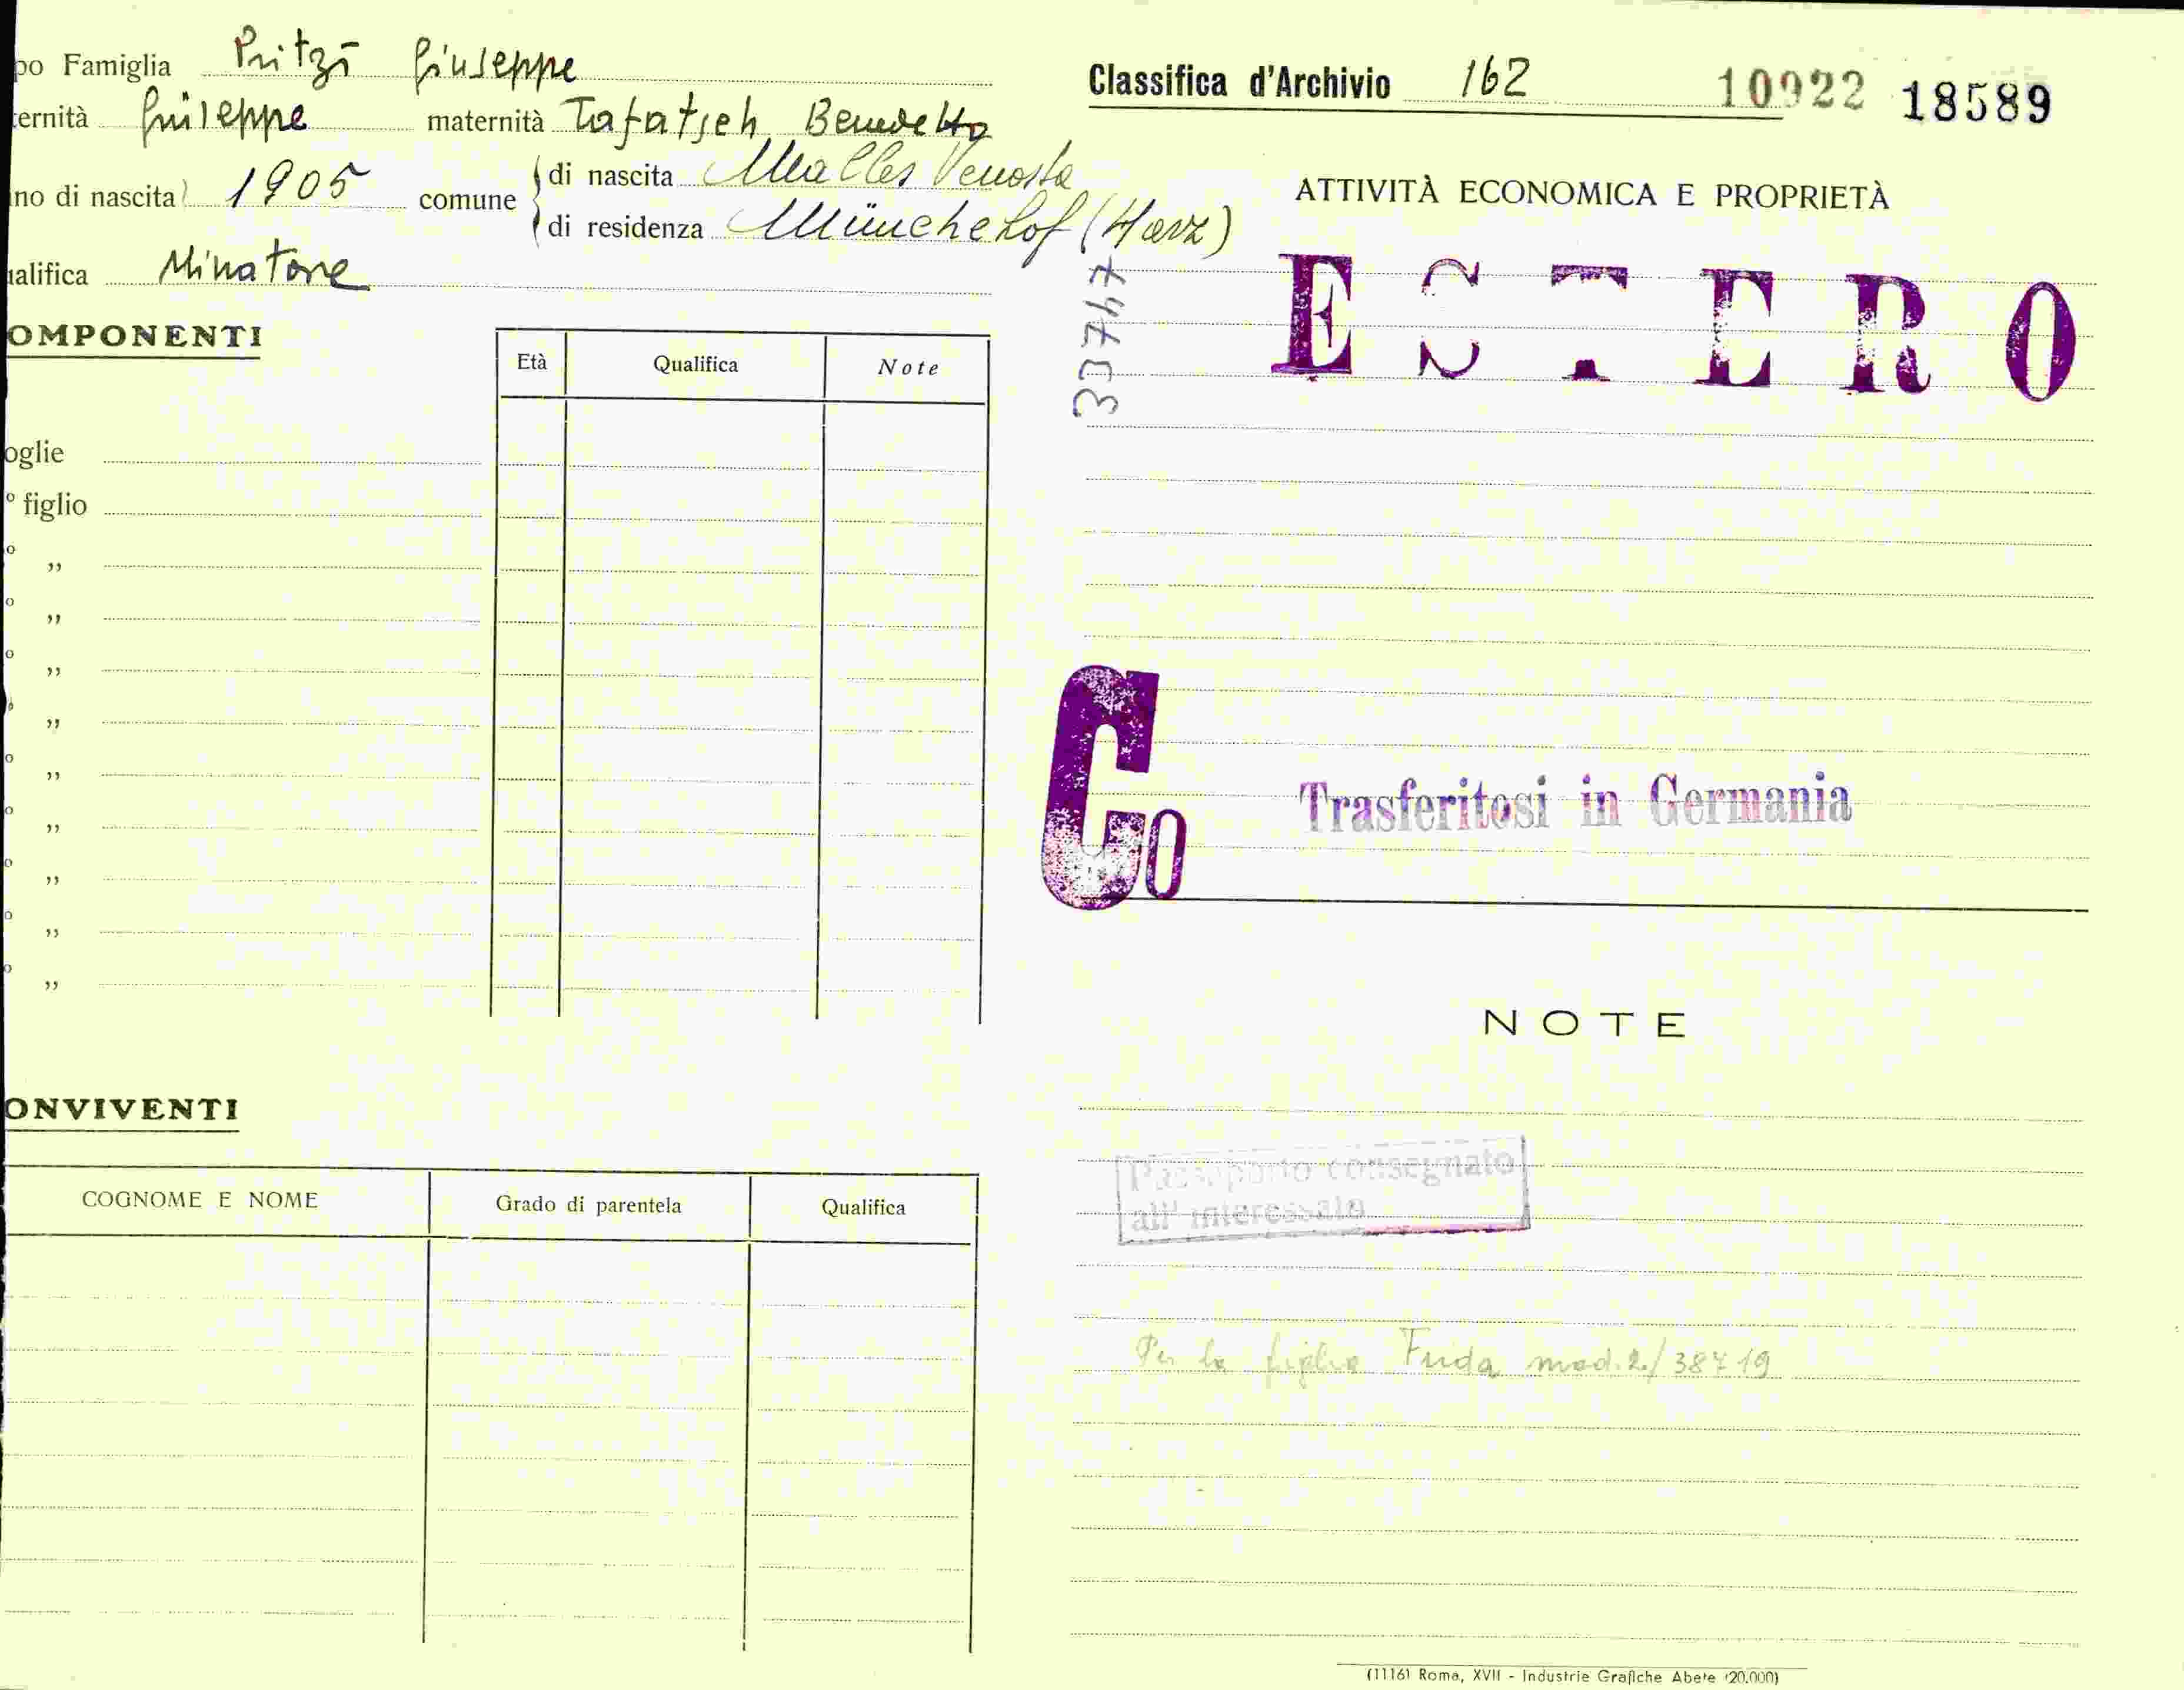 po Famiglia Pritzi Giuseppe
ernità Giuseppe maternità Tafatsch Benedetta
no di nascita 1905 comune di nascita Malles Venosta
di residenza Münchehof (Harz)
alifica Minatore
OMPONENTI
Età Qualifica Note
oglie
° figlio
° ,,
° ,,
° ,,
° ,,
° ,,
° ,,
° ,,
° ,,
° ,,
ONVIVENTI
COGNOME E NOME Grado di parentela Qualifica
Classifica d'Archivio 162 10922 18589
ATTIVITÀ ECONOMICA E PROPRIETÀ
33747
ESTERO
Co
Trasferitosi in Germania
NOTE
Passaporto consegnato
all' interessato
Per la figlia Frida mod. 2/38719
(1116) Roma, XVII - Industrie Grafiche Abete (20.000)